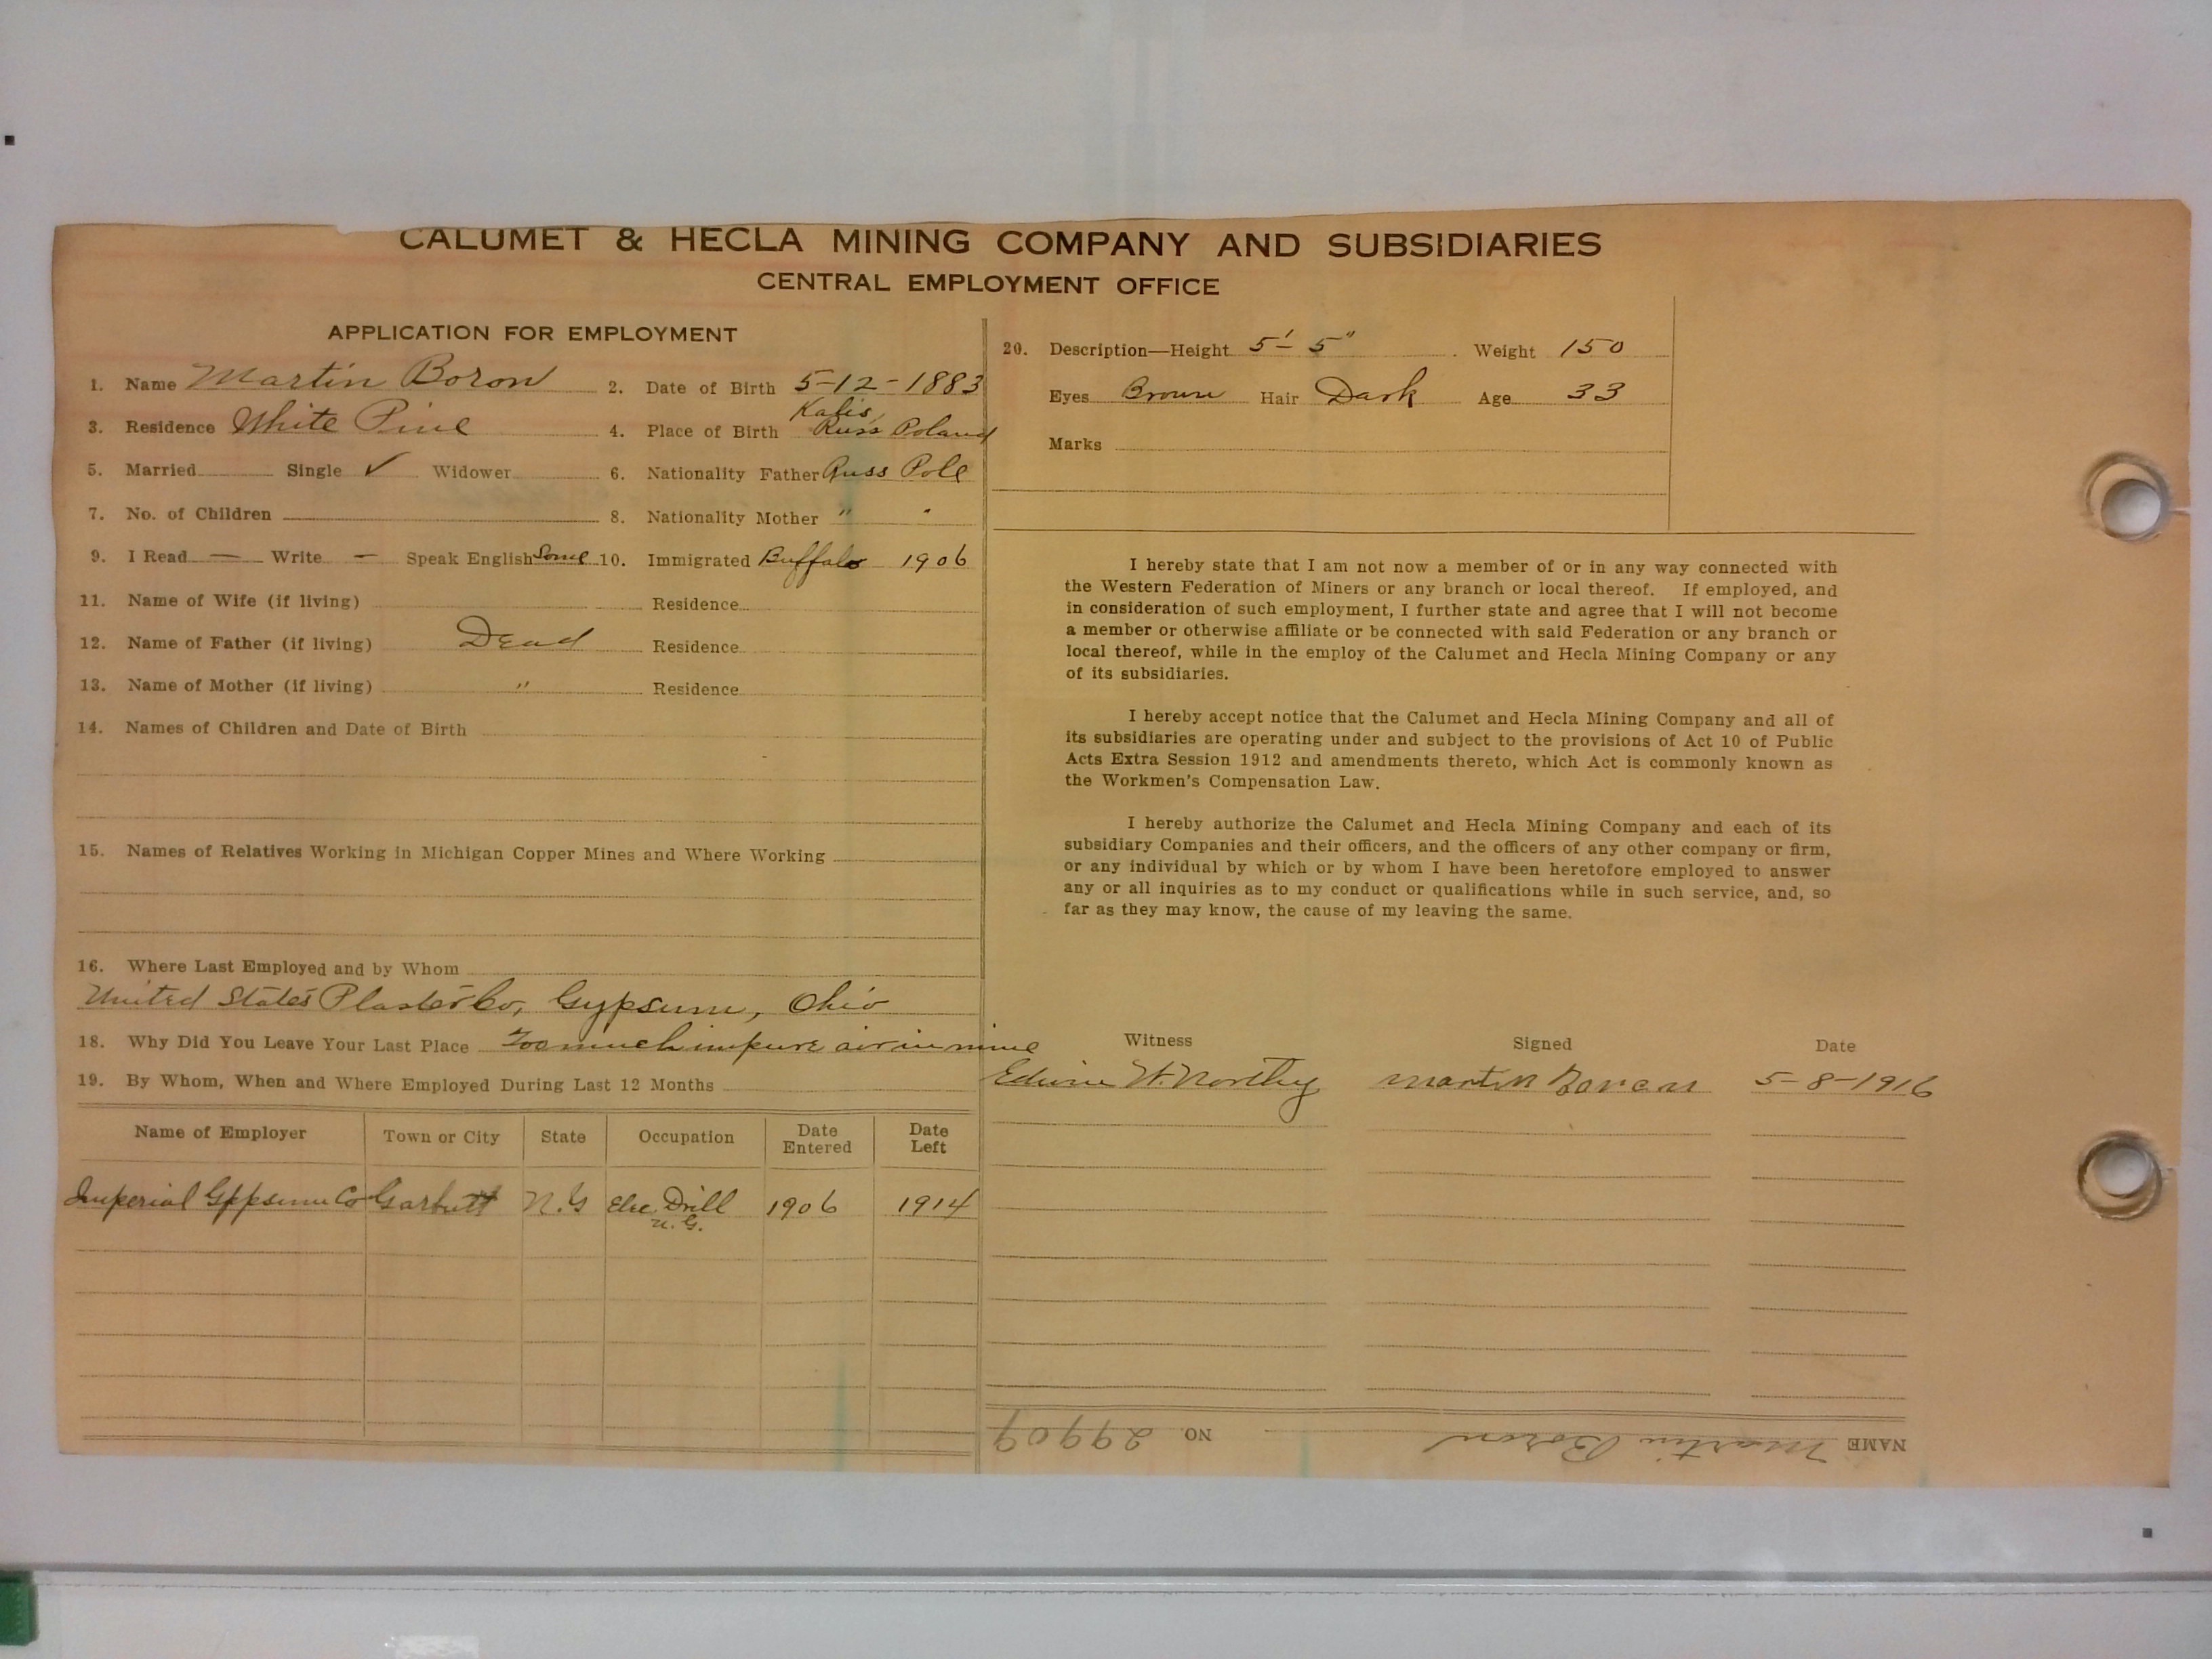 CALUMET & HECLA MINING COMPANY AND SUBSIDIARIES
CENTRAL EMPLOYMENT OFFICE
APPLICATION FOR EMPLOYMENT
1. Name Martin Boron 2. Date of Birth 5-12-1883
3. Residence White Pine 4. Place of Birth Kalis, Russ Poland
5. Married Single ✓ Widower 6. Nationality Father Russ Pole
7. No. of Children 8. Nationality Mother " "
9. I Read — Write — Speak English Some 10. Immigrated Buffalo 1906
11. Name of Wife (if living) Residence
12. Name of Father (if living) Dead Residence
13. Name of Mother (if living) " Residence
14. Names of Children and Date of Birth
15. Names of Relatives Working in Michigan Copper Mines and Where Working
16. Where Last Employed and by Whom
United States Plaster Co, Gypsum, Ohio
18. Why Did You Leave Your Last Place Too much impure air in mine
19. By Whom, When and Where Employed During Last 12 Months
Name of Employer Town or City State Occupation Date Entered Date Left
Imperial Gppsum Co Garbutt N.Y Elec. Drill 1906 1914
U.G.
20. Description—Height 5' 5" Weight 150
Eyes Brown Hair Dark Age 33
Marks
I hereby state that I am not now a member of or in any way connected with
the Western Federation of Miners or any branch or local thereof. If employed, and
in consideration of such employment, I further state and agree that I will not become
a member or otherwise affiliate or be connected with said Federation or any branch or
local thereof, while in the employ of the Calumet and Hecla Mining Company or any
of its subsidiaries.
I hereby accept notice that the Calumet and Hecla Mining Company and all of
its subsidiaries are operating under and subject to the provisions of Act 10 of Public
Acts Extra Session 1912 and amendments thereto, which Act is commonly known as
the Workmen's Compensation Law.
I hereby authorize the Calumet and Hecla Mining Company and each of its
subsidiary Companies and their officers, and the officers of any other company or firm,
or any individual by which or by whom I have been heretofore employed to answer
any or all inquiries as to my conduct or qualifications while in such service, and, so
far as they may know, the cause of my leaving the same.
Witness Signed Date
Edwin W. Northy Martin 5-8-1916
NAME Martin Boron NO. 29909